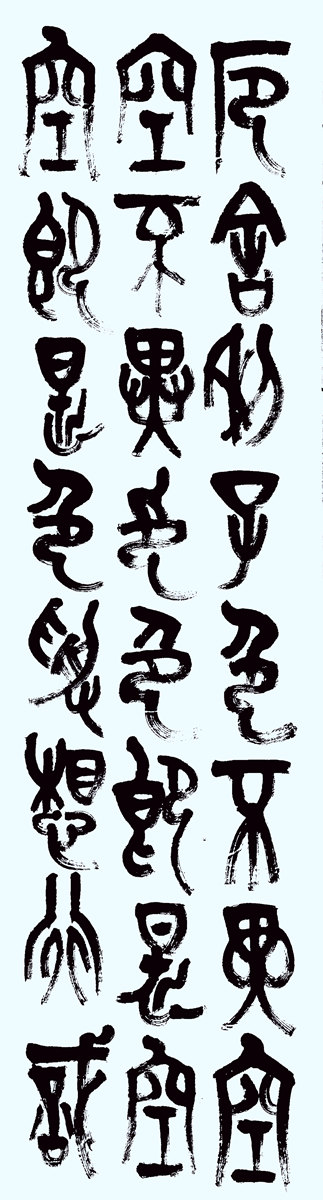 厄舍利子色不異空
空不異色色即是空
空即是色受想行識